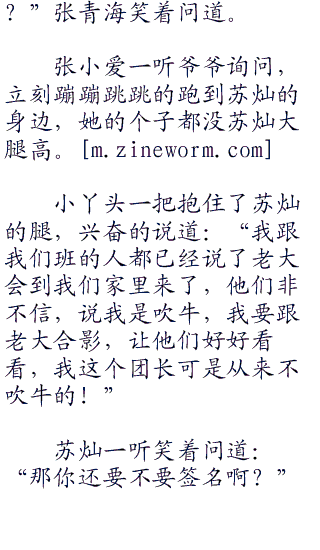 ？”张青海笑着问道。
张小爱一听爷爷询问，
立刻蹦蹦跳跳的跑到苏灿的
身边，她的个子都没苏灿大
腿高。[m.zineworm.com]
小丫头一把抱住了苏灿
的腿，兴奋的说道：“我跟
我们班的人都已经说了老大
会到我们家里来了，他们非
不信，说我是吹牛，我要跟
老大合影，让他们好好看
看，我这个团长可是从来不
吹牛的！”
苏灿一听笑着问道：
“那你还要不要签名啊？”